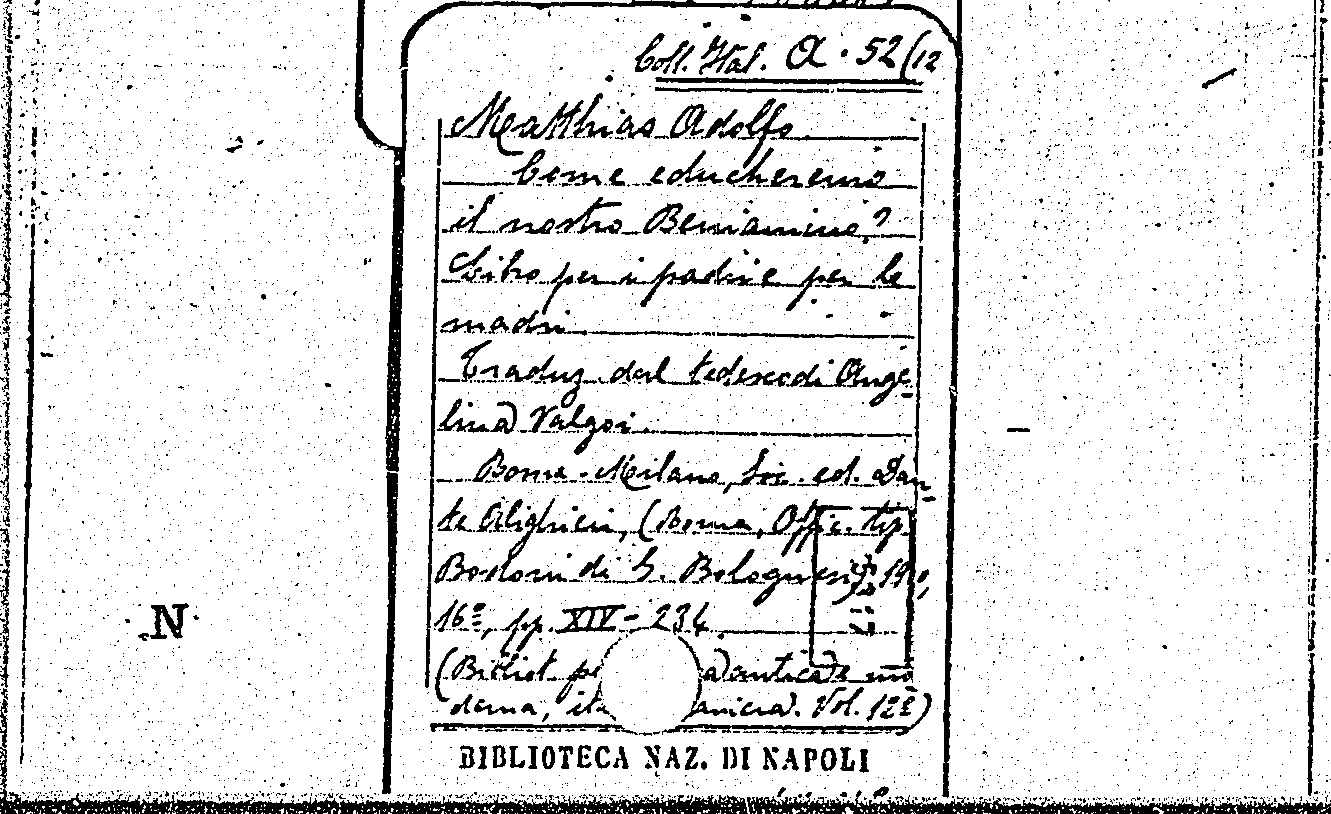 Coll. Ital. A. 52/12
Matthias Adolfo
Come educheremo
il nostro Beniamino?
Libro per i padri e per le
madri
Traduz. dal tedesco di Ange-
lina Valgoi.
Roma-Milano, Soc. ed. Dan-
te Alighieri, (Roma, Offic. tip.
Bodoni di G. Bolognesi),
16º, pp. XIV-234.
(Bibliot. antica e mo
derna, Vol. 12º)
BIBLIOTECA NAZ. DI NAPOLI
N